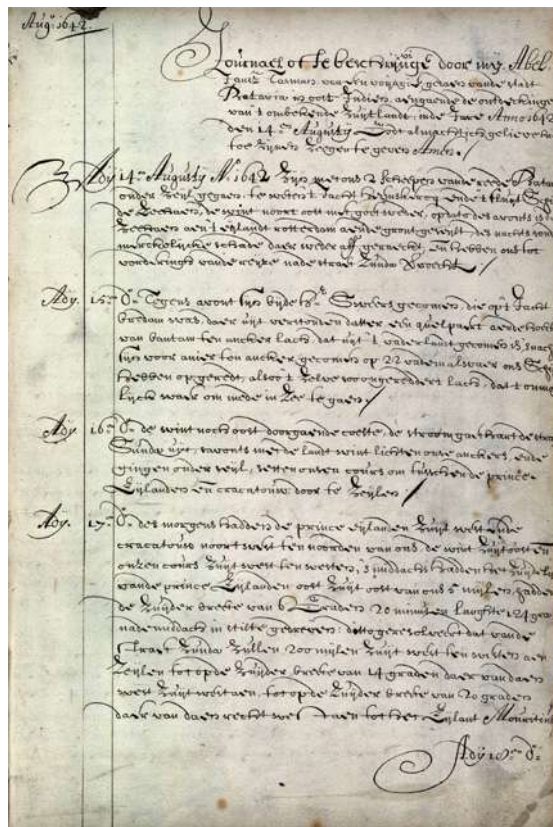 Augu: 1642.
Journael ofte beschrijvinge door mij Abel
Jansz Tasman, van een voyagie, gedaen vande stadt
Batavia in oost Indien, aengaende de ontdeckinge
van 't onbekende Zuytlandt, inde Jare Anno 1642
den 14.en Augustij Godt almachtich gelieve hier
toe zijnen Zeegen te geven Amen./
Ady 14.en Augustij Ao. 1642 Zijn met ons 2 scheepen vande reede
onder Zeyl gegaen, te weten 't Jacht Heemskercq ende 't fluyt
de Zeehaen, de wint noort oost met goet weder, op dato des avonts is
Zeehaen aen 't eylandt rotterdam aende gront geseylt, des nachts
merckelijcke schade daer weder aff geraeckt, en hebben ons tot
vorderingh vande reyse nade straet Zunda versocht /
Ady. 15.en do. Tegens avont sijn bijde hr. Sweers gecomen, die op 't Jacht
Bredam was, daer uyt verstonden datter een quelpaert aende hoeck
van bantam ten ancker lach, dat uyt 't vaderlant gecomen is,
sijn voor anier ten ancker gecomen op 22 vadem alwaer ons
hebben opgeredt, alsoo 't selve soo ongereddert lach, dat 't
lijck waer om mede in Zee te gaen /
Ady. 16.en do. de wint noch oost doorgaende coelte, de stroom gaet hart de
Sunda uyt, 'savonts met de lant wint lichten onse anckers, ende
gingen onder seyl, setten onsen cours om tusschen de prince
Eijlanden en cracatouw door te Zeylen /
Ady. 17.en do. des morgens hadden de prince eijlanden Zuyt oost ende
cracatouw noort west ten noorden van ons, de wint Zuyt oost en
onsen cours Zuyt west ten westen, smiddachs hadden het Zuydelijckste
vande prince Eylanden oost Zuyt oost van ons 5 mijlen, hadden
de Zuyder breete van 6 Graden 20 minuten lenghte 124 graden
nade middach in stilte gedreven; ditto geresolveert dat vande
Straet Zunda Zullen 200 mijlen Zuyt west ten westen aen
Zeylen tot op de Zuyder breete van 14 graden daer van daen
west Zuyt west aen, tot op de Zuyder breete van 20 graden
daer van daen recht west aen tot het Eylant Mouritius
Ady 18.en do.